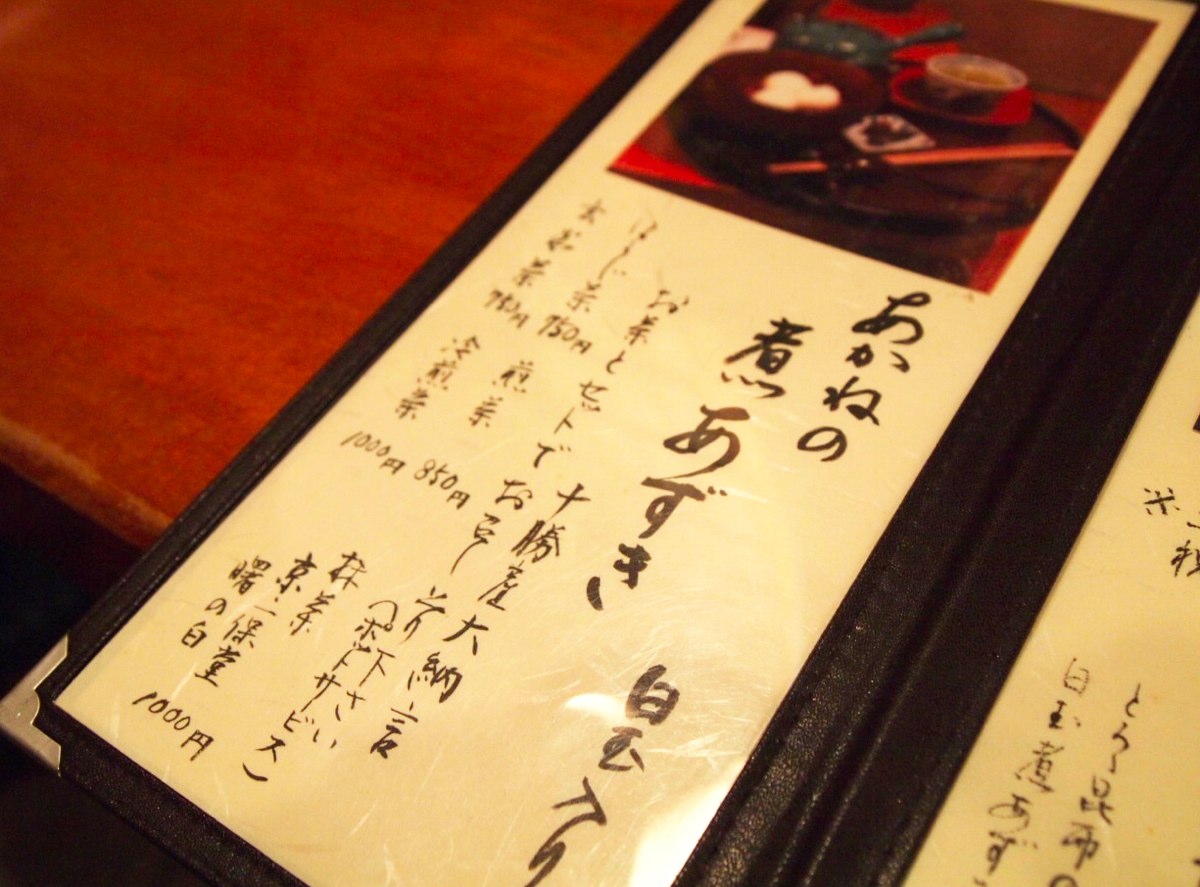 あかねの
煮あずき 白玉入り
十勝産大納言
お茶とセットでお召し上がり下さい
(ポットサービス)
ほうじ茶 750円
玄米茶 750円
煎茶 850円
冷煎茶 1000円
抹茶
京一保堂
曙の白 1000円
昆布の
白玉煮あず